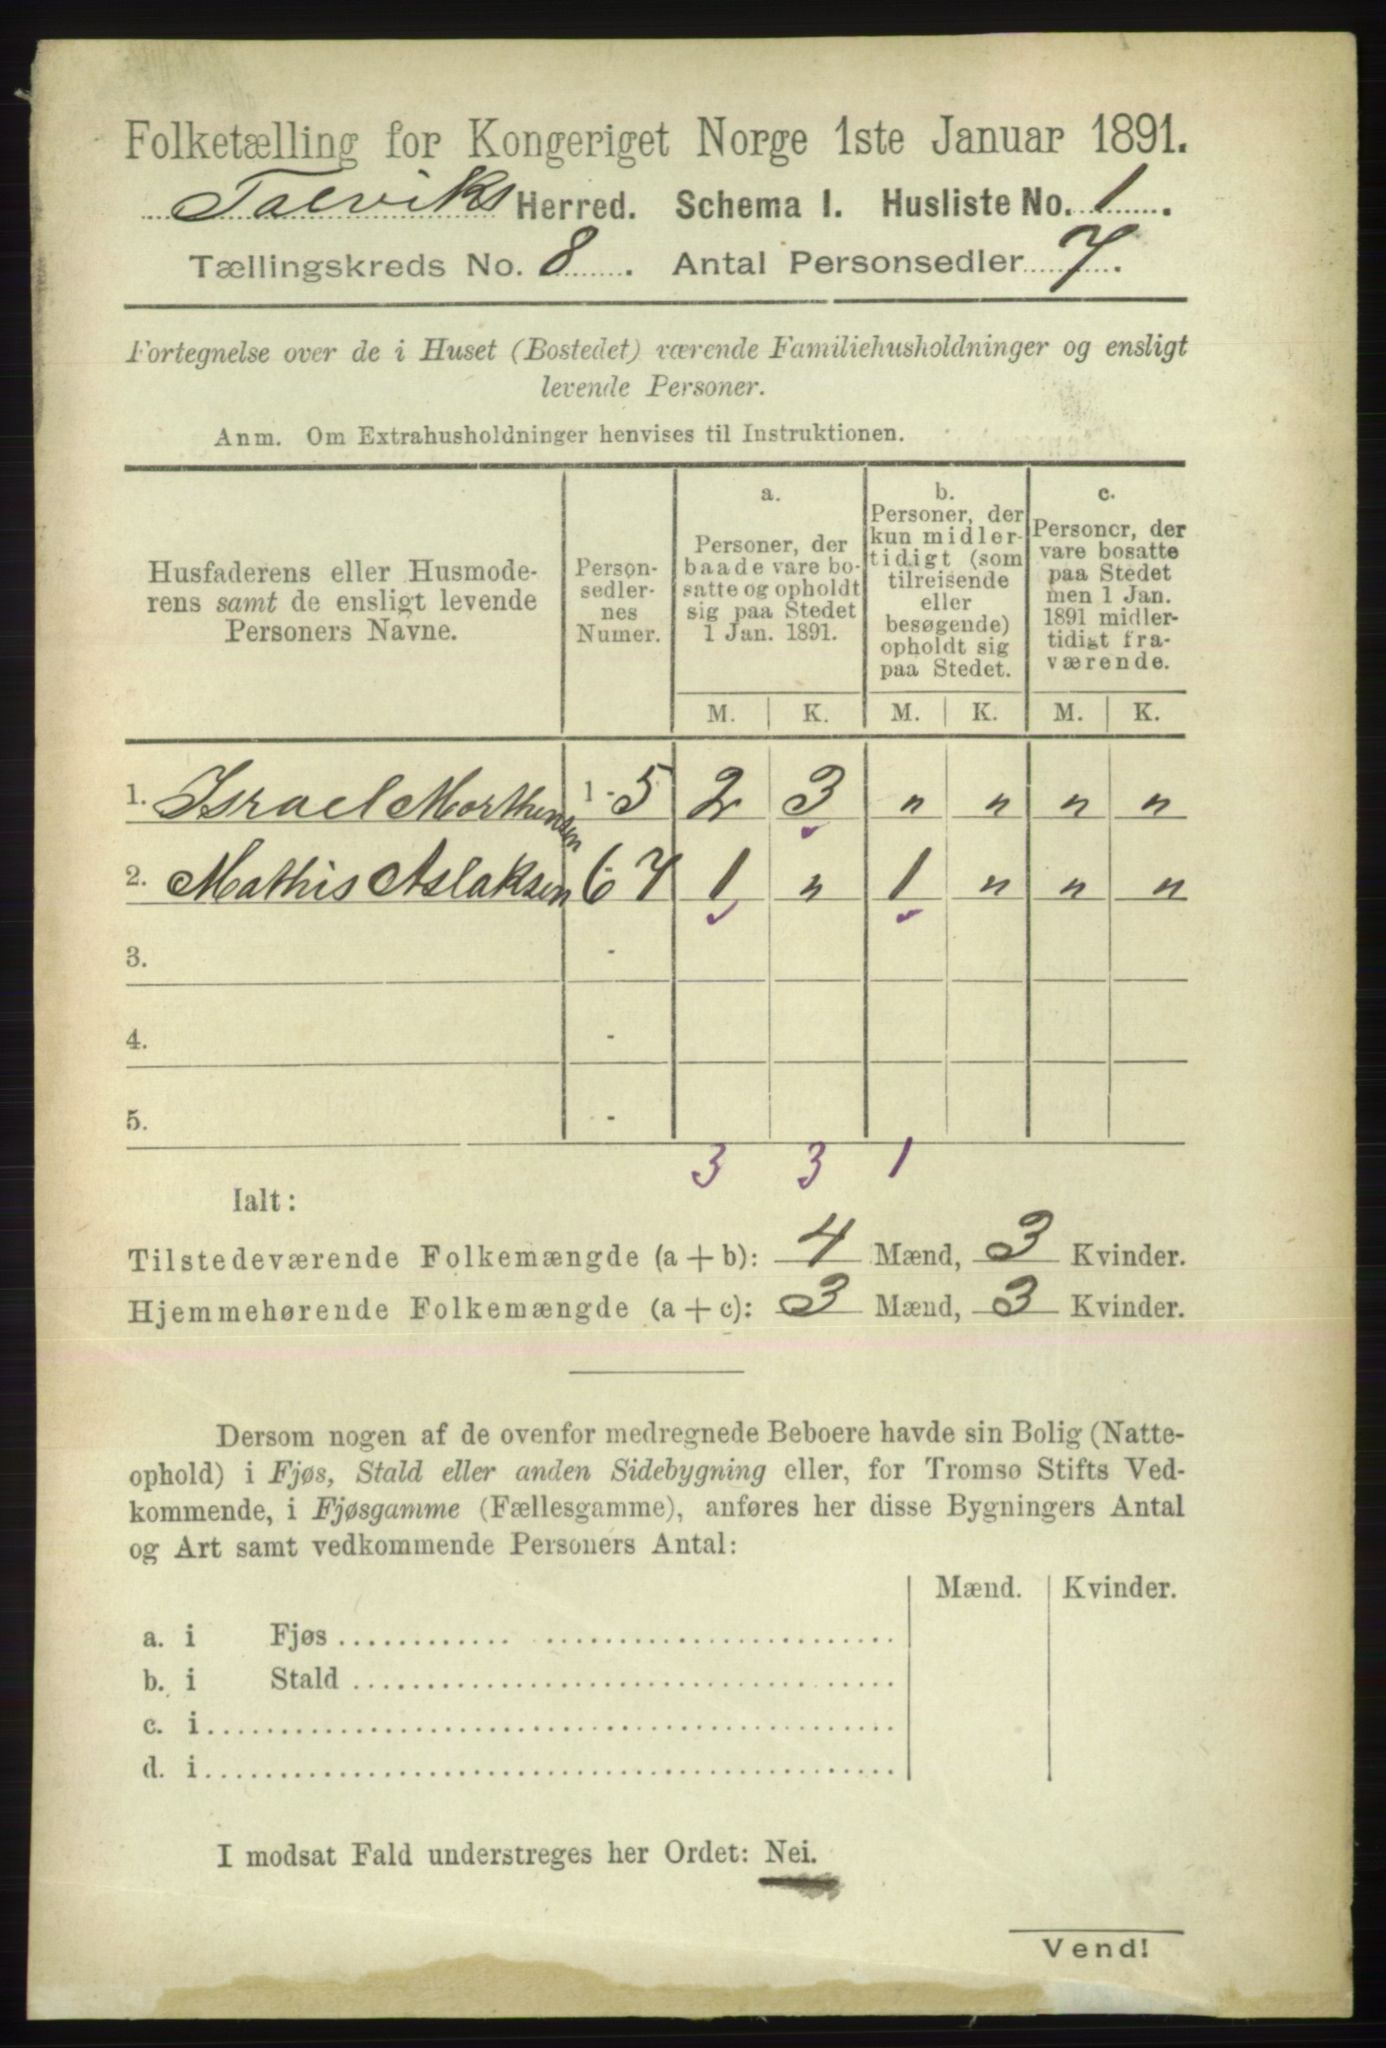 Folketælling for Kongeriget Norge 1ste Januar 1891.
Talviks Herred. Schema I. Husliste No. 1.
Tællingskreds No. 8. Antal Personsedler 7.
Fortegnelse over de i Huset (Bostedet) værende Familiehusholdninger og ensligt
levende Personer.
Anm. Om Extrahusholdninger henvises til Instruktionen.
Husfaderens eller Husmode-
rens samt de ensligt levende
Personers Navne.
Person-
sedler-
nes
Numer.
a.
Personer, der
baade vare bo-
satte og opholdt
sig paa Stedet
1 Jan. 1891.
b.
Personer, der
kun midler-
tidigt (som
tilreisende
eller
besøgende)
opholdt sig
paa Stedet.
c.
Personer, der
vare bosatte
paa Stedet
men 1 Jan.
1891 midler-
tidigt fra-
værende.
M. K. M. K. M. K.
1. Israel Morthensen 1 - 5 2 3 " " " "
2. Mathis Aslaksen 6 - 7 1 " 1 " " "
3. -
4. -
5. -
3 3 1
Ialt:
Tilstedeværende Folkemængde (a + b): 4 Mænd, 3 Kvinder.
Hjemmehørende Folkemængde (a + c): 3 Mænd, 3 Kvinder.
Dersom nogen af de ovenfor medregnede Beboere havde sin Bolig (Natte-
ophold) i Fjøs, Stald eller anden Sidebygning eller, for Tromsø Stifts Ved-
kommende, i Fjøsgamme (Fællesgamme), anføres her disse Bygningers Antal
og Art samt vedkommende Personers Antal:
Mænd. Kvinder.
a. i Fjøs
b. i Stald
c. i
d. i
I modsat Fald understreges her Ordet: Nei.
Vend!